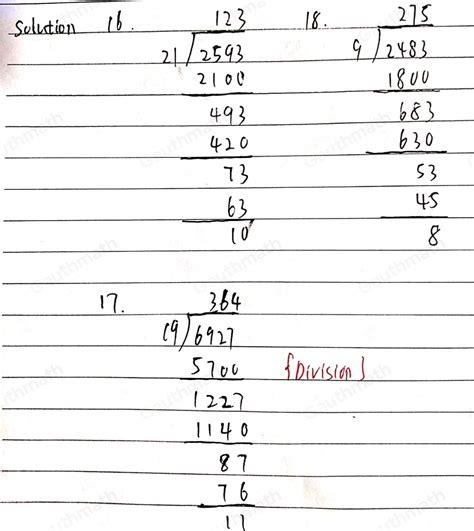 Solution 16. 123 18. 275
21 / 2593 9 / 2483
2100 1800
493 683
420 630
73 53
63 45
10 8
17. 364
19 / 6927
5700 {Division}
1227
1140
87
76
11
Gauthmath